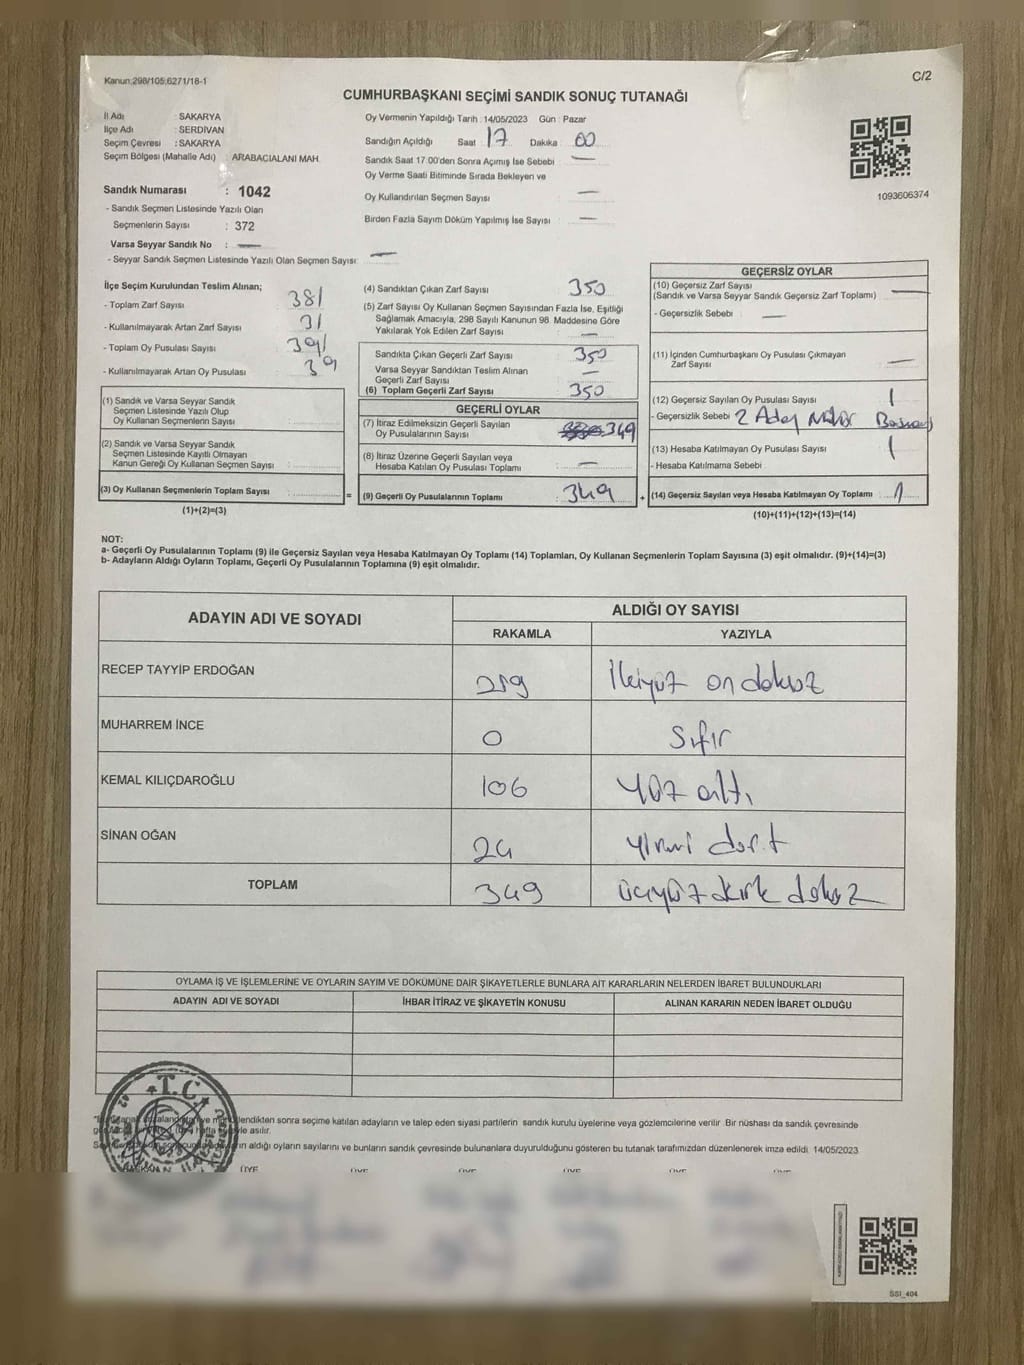 Kanun:298/105;6271/18-1
C/2
CUMHURBAŞKANI SEÇİMİ SANDIK SONUÇ TUTANAĞI
İl Adı : SAKARYA
İlçe Adı : SERDİVAN
Seçim Çevresi : SAKARYA
Seçim Bölgesi (Mahalle Adı) : ARABACIALANI MAH.
Sandık Numarası : 1042
- Sandık Seçmen Listesinde Yazılı Olan
Seçmenlerin Sayısı : 372
Varsa Seyyar Sandık No : —
- Seyyar Sandık Seçmen Listesinde Yazılı Olan Seçmen Sayısı: —
Oy Vermenin Yapıldığı Tarih : 14/05/2023 Gün : Pazar
Sandığın Açıldığı Saat 17 Dakika : 00
Sandık Saat 17.00'den Sonra Açımış İse Sebebi —
Oy Verme Saati Bitiminde Sırada Bekleyen ve
Oy Kullandırılan Seçmen Sayısı —
Birden Fazla Sayım Döküm Yapılmış İse Sayısı —
1093606374
İlçe Seçim Kurulundan Teslim Alınan;
- Toplam Zarf Sayısı 381
- Kullanılmayarak Artan Zarf Sayısı 31
- Toplam Oy Pusulası Sayısı 391
- Kullanılmayarak Artan Oy Pusulası 39
(1) Sandık ve Varsa Seyyar Sandık
Seçmen Listesinde Yazılı Olup
Oy Kullanan Seçmenlerin Sayısı :
(2) Sandık ve Varsa Seyyar Sandık
Seçmen Listesinde Kayıtlı Olmayan
Kanun Gereği Oy Kullanan Seçmen Sayısı :
(3) Oy Kullanan Seçmenlerin Toplam Sayısı
(1)+(2)=(3)
(4) Sandıktan Çıkan Zarf Sayısı 350
(5) Zarf Sayısı Oy Kullanan Seçmen Sayısından Fazla İse, Eşitliği
Sağlamak Amacıyla, 298 Sayılı Kanunun 98. Maddesine Göre
Yakılarak Yok Edilen Zarf Sayısı —
Sandıkta Çıkan Geçerli Zarf Sayısı 350
Varsa Seyyar Sandıktan Teslim Alınan
Geçerli Zarf Sayısı —
(6) Toplam Geçerli Zarf Sayısı 350
GEÇERLİ OYLAR
(7) İtiraz Edilmeksizin Geçerli Sayılan
Oy Pusulalarının Sayısı 349
(8) İtiraz Üzerine Geçerli Sayılan veya
Hesaba Katılan Oy Pusulası Toplamı —
= (9) Geçerli Oy Pusulalarının Toplamı 349 +
GEÇERSİZ OYLAR
(10) Geçersiz Zarf Sayısı
(Sandık ve Varsa Seyyar Sandık Geçersiz Zarf Toplamı) —
- Geçersizlik Sebebi : —
(11) İçinden Cumhurbaşkanı Oy Pusulası Çıkmayan
Zarf Sayısı —
(12) Geçersiz Sayılan Oy Pusulası Sayısı 1
- Geçersizlik Sebebi 2 Aday
(13) Hesaba Katılmayan Oy Pusulası Sayısı 1
- Hesaba Katılmama Sebebi
(14) Geçersiz Sayılan veya Hesaba Katılmayan Oy Toplamı 1
(10)+(11)+(12)+(13)=(14)
NOT:
a- Geçerli Oy Pusulalarının Toplamı (9) ile Geçersiz Sayılan veya Hesaba Katılmayan Oy Toplamı (14) Toplamları, Oy Kullanan Seçmenlerin Toplam Sayısına (3) eşit olmalıdır. (9)+(14)=(3)
b- Adayların Aldığı Oyların Toplamı, Geçerli Oy Pusulalarının Toplamına (9) eşit olmalıdır.
ADAYIN ADI VE SOYADI
ALDIĞI OY SAYISI
RAKAMLA YAZIYLA
RECEP TAYYİP ERDOĞAN 219 İkiyüz on dokuz
MUHARREM İNCE 0 Sıfır
KEMAL KILIÇDAROĞLU 106 yüz altı
SİNAN OĞAN 24 yirmi dört
TOPLAM 349 üçyüz kırk dokuz
OYLAMA İŞ VE İŞLEMLERİNE VE OYLARIN SAYIM VE DÖKÜMÜNE DAİR ŞİKAYETLERLE BUNLARA AİT KARARLARIN NELERDEN İBARET BULUNDUKLARI
ADAYIN ADI VE SOYADI İHBAR İTİRAZ VE ŞİKAYETİN KONUSU ALINAN KARARIN NEDEN İBARET OLDUĞU
T.C.
lendikten sonra seçime katılan adayların ve talep eden siyasi partilerin sandık kurulu üyelerine veya gözlemcilerine verilir. Bir nüshası da sandık çevresinde
asılır.
aldığı oyların sayılarını ve bunların sandık çevresinde bulunanlara duyurulduğunu gösteren bu tutanak tarafımızdan düzenlenerek imza edildi. 14/05/2023
BAŞKAN ÜYE ÜYE ÜYE ÜYE ÜYE ÜYE
SSI_404